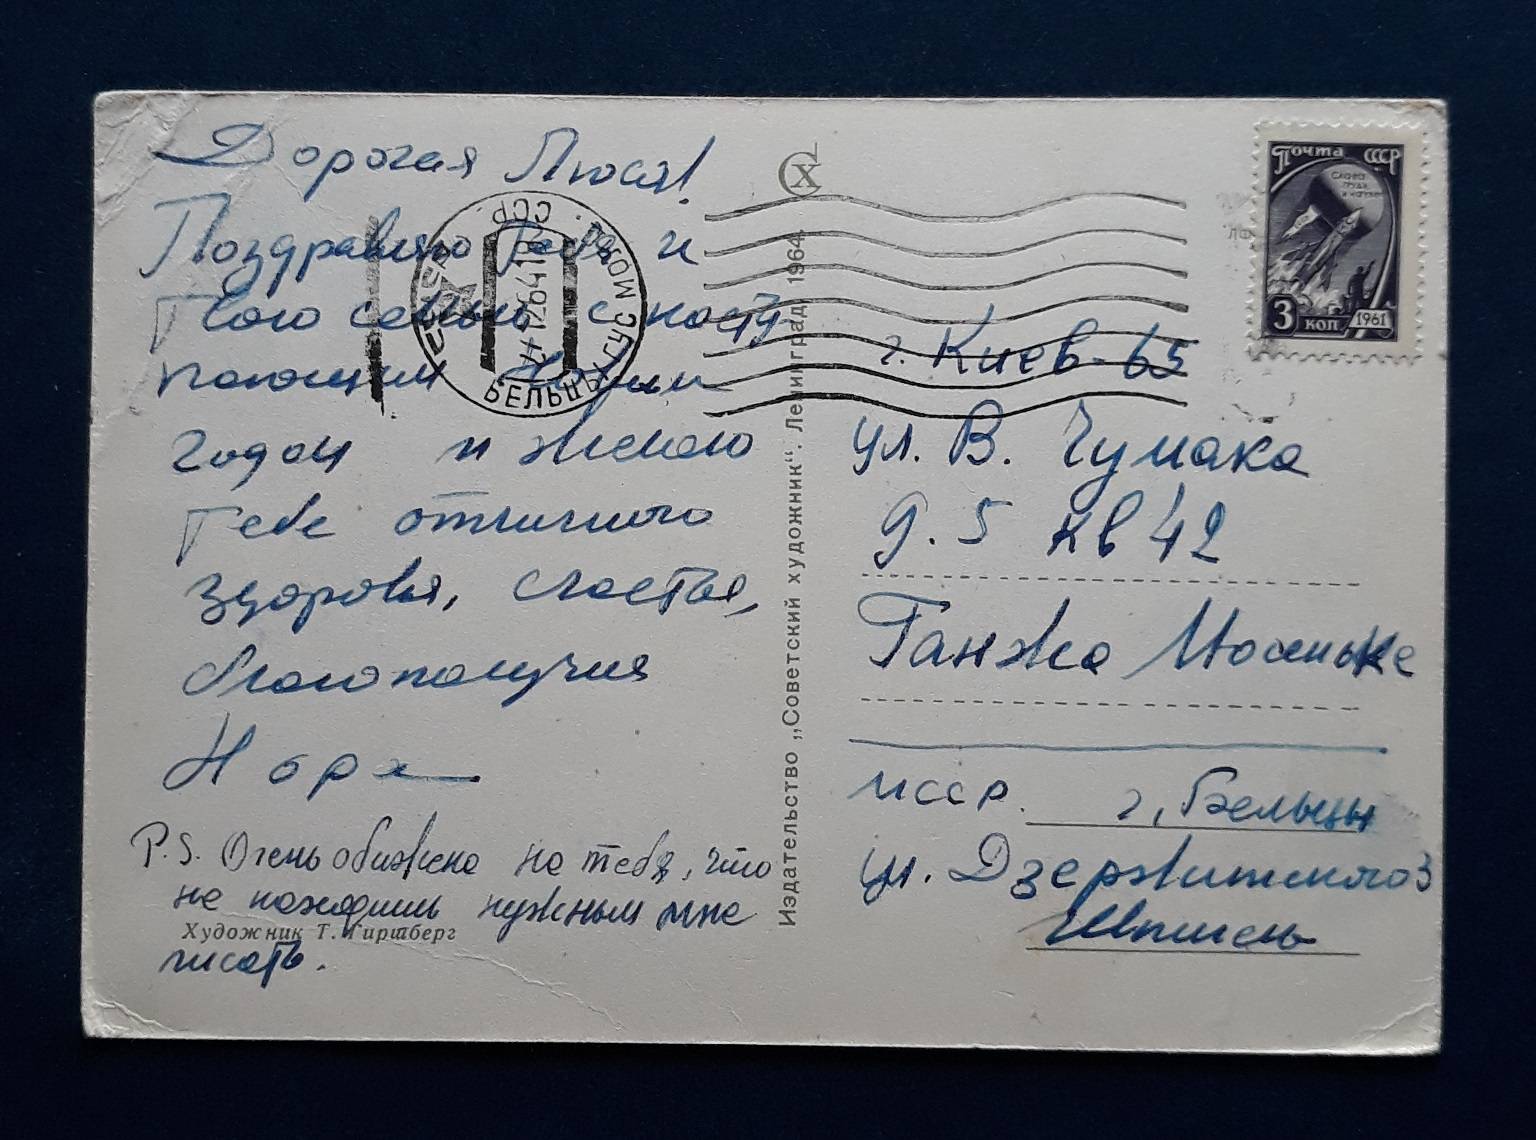 Дорогая Люся!
Поздравляю Тебя и
Твою семью с насту
пающим Новым
годом и желаю
Тебе отличного
здоровья, счастья,
благополучия
Нора
P.S. Очень обижена на тебя, что
не находишь нужным мне
писать.
Художник Т. Гиршберг
Издательство „Советский художник". Ленинград. 1964.
СХ
Почта СССР
СЛАВА
ТРУДУ
И НАУКЕ
3 коп 1961
БЕЛЬЦЫ
ССР
г. Киев-65
ул. В. Чумака
д. 5 кв 42
Ганжа
МССР. г. Бельцы
ул. Дзержинского 3